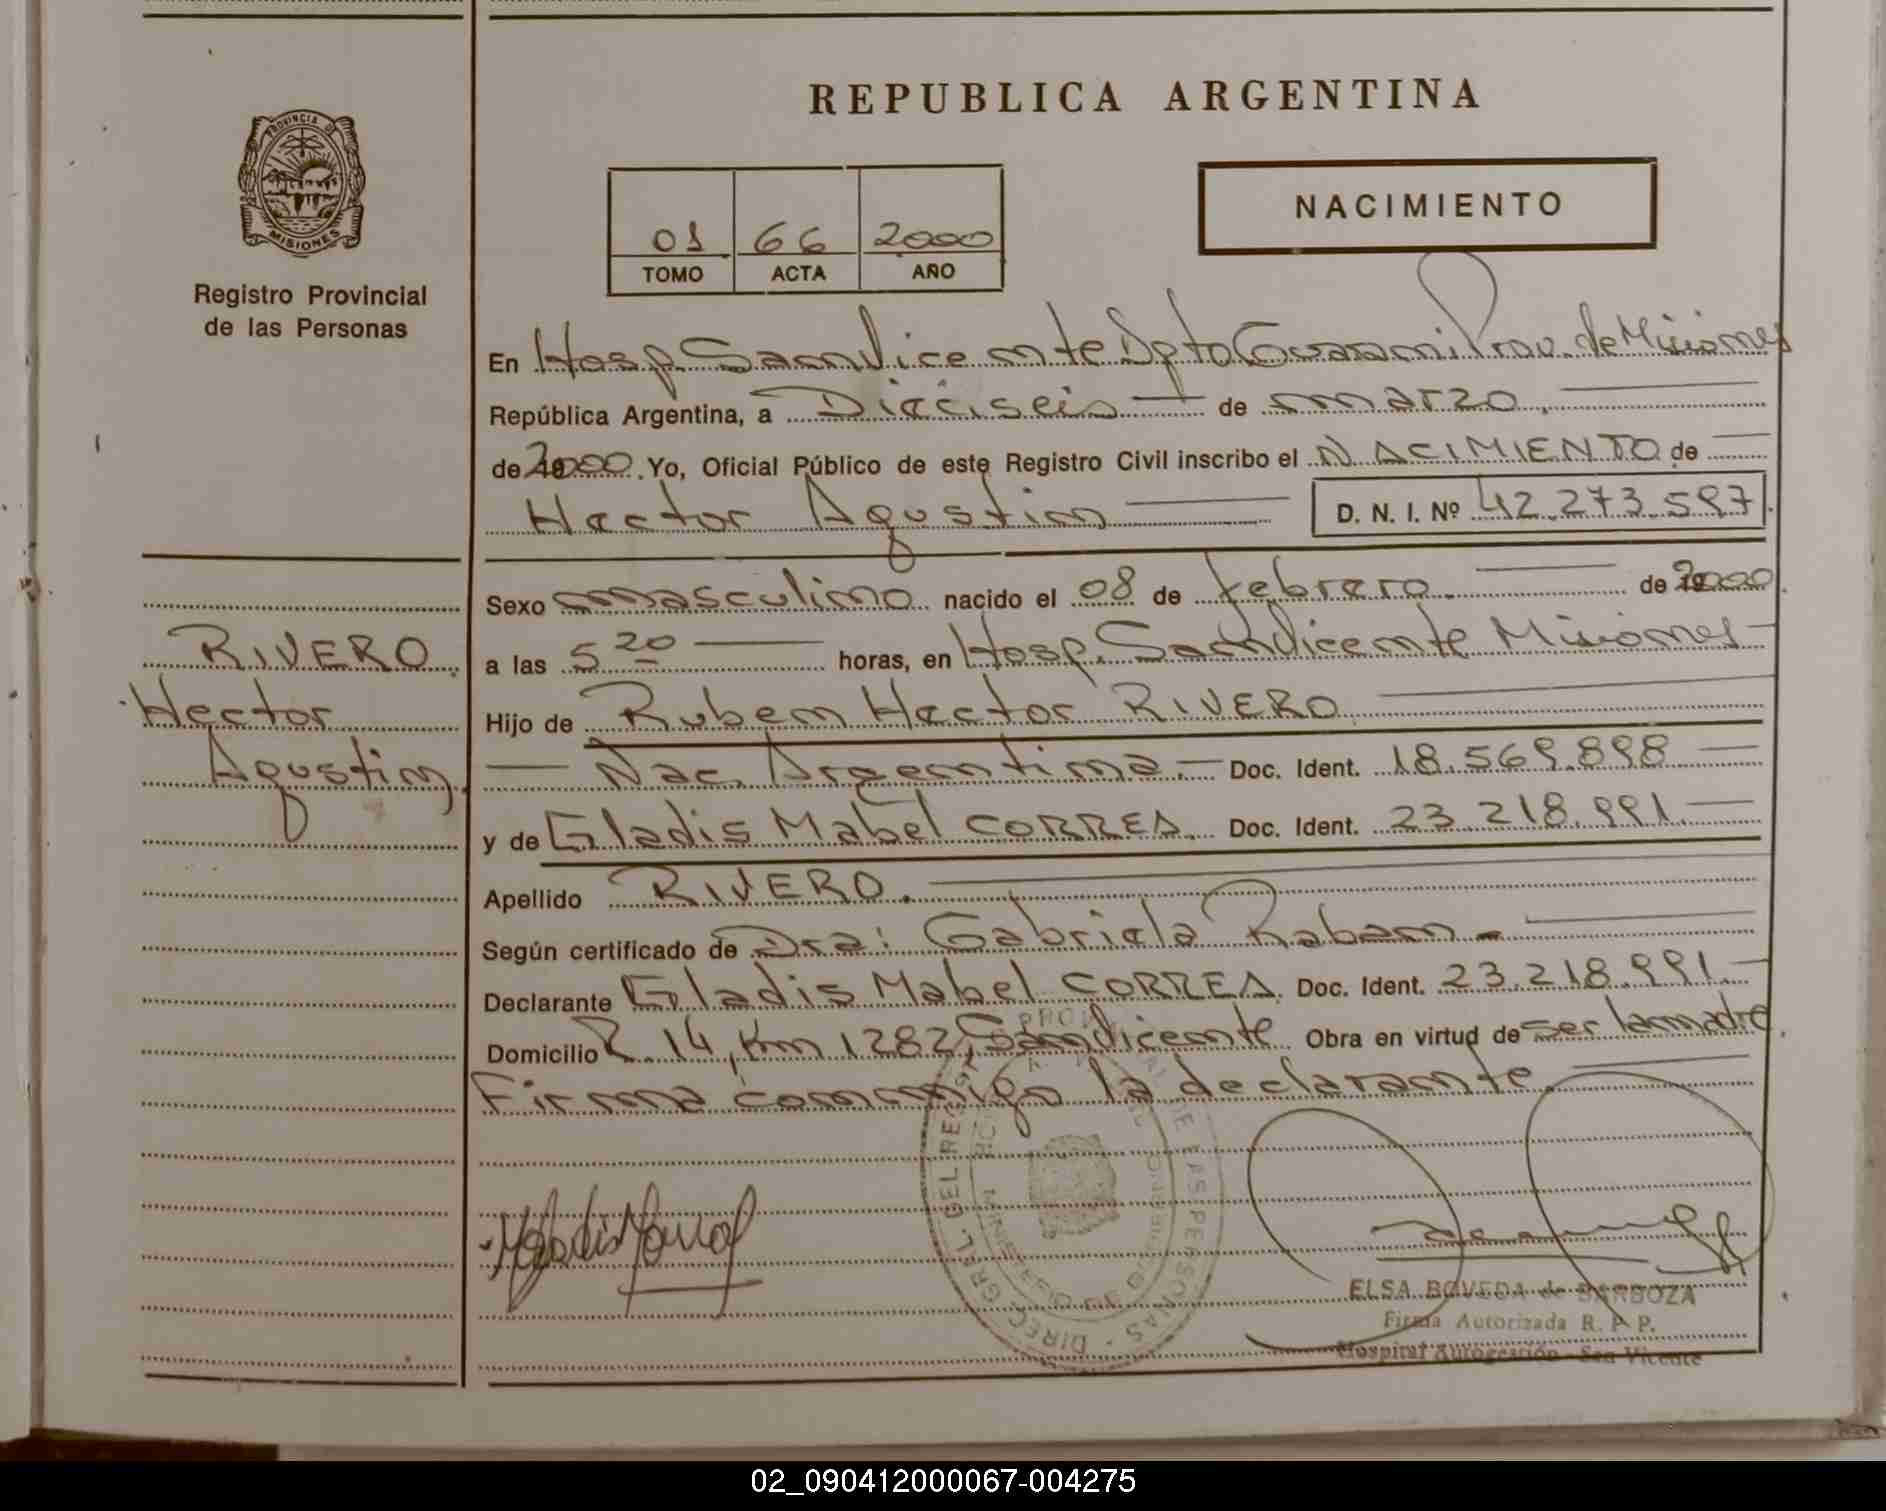 REPUBLICA ARGENTINA
PROVINCIA DE MISIONES
Registro Provincial
de las Personas
01 66 2000
TOMO ACTA AÑO
NACIMIENTO
En Hosp. San Vicente Dpto Guarani Prov. de Misiones
República Argentina, a Dieciseis de marzo.
de 2000. Yo, Oficial Público de este Registro Civil inscribo el NACIMIENTO de
Hector Agustin D. N. I. Nº 42.273.597
Sexo masculino nacido el 08 de febrero. de 2000
a las 5 20 horas, en Hosp. San Vicente Misiones
Hijo de Ruben Hector RIVERO
Nac. Argentina. Doc. Ident. 18.569.898
y de Gladis Mabel CORREA. Doc. Ident. 23.218.991.
Apellido RIVERO.
Según certificado de Dra: Gabriela Raban
Declarante Gladis Mabel CORREA. Doc. Ident. 23.218.991.
Domicilio R. 14, Km 1282, San Vicente. Obra en virtud de ser la madre.
Firma conmigo la declarante.
RIVERO.
Hector
Agustin.
DIREC. GRAL. DEL REGISTRO PROVINCIAL DE LAS PERSONAS
MINISTERIO DE GOBIERNO
ELSA BOVEDA de BARBOZA
Firma Autorizada R. P. P.
Hospital Autogestión - San Vicente
02_090412000067-004275